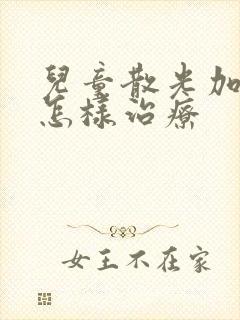 兒童散光加
怎樣治療
女王不在家